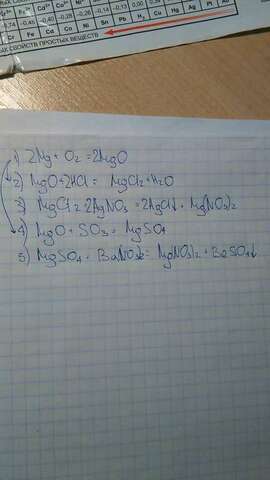 -0,74 -0,45 -0,40 -0,28 -0,25 -0,14 -0,13 0,00
Cr Fe Cd Co Ni Sn Pb H₂ Cu Hg Ag Pt Au
СВОЙСТВ ПРОСТЫХ ВЕЩЕСТВ
1) 2Mg + O₂ = 2MgO
2) MgO + 2HCl = MgCl₂ + H₂O
3) MgCl₂ + 2AgNO₃ = 2AgCl↓ + Mg(NO₃)₂
4) MgO + SO₃ = MgSO₄
5) MgSO₄ + Ba(NO₃)₂ = Mg(NO₃)₂ + BaSO₄↓